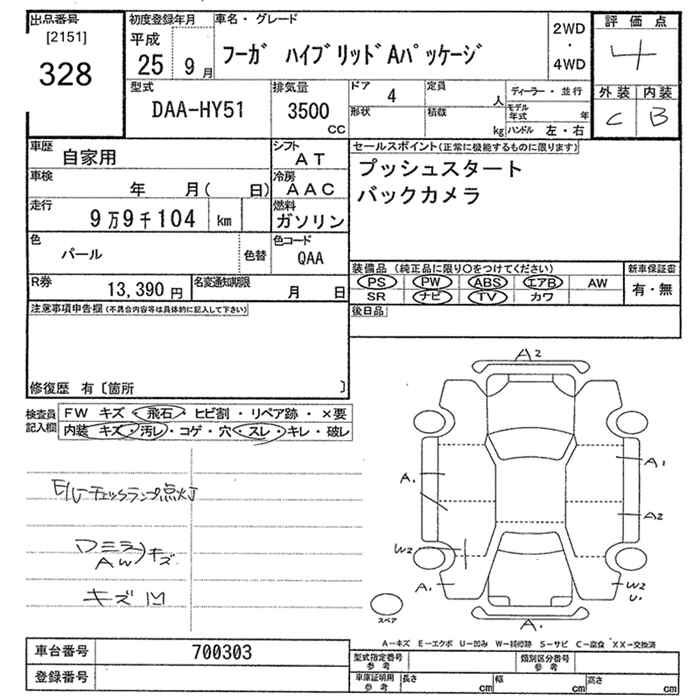 出品番号 初度登録年月 車名・グレード
[2151]
328
平成
25 9月
フーガ ハイブリッドAパッケージ
2WD
・
4WD
評価点
4
外装 内装
C B
型式 排気量 ドア 定員 ディーラー・並行
DAA-HY51 3500 cc 4 人
形状 積載 kg モデル年式 年
ハンドル 左・右
車歴 自家用 シフト AT
セールスポイント(正常に機能するものに限ります)
プッシュスタート
バックカメラ
車検 年 月( 日) 冷房 AAC
走行 9万9千104 km 燃料 ガソリン
色 パール 色替 色コード QAA
装備品(純正品に限り○をつけてください) 新車保証書
PS PW ABS エアB AW 有・無
SR ナビ TV カワ
R券 13,390円 名変通知期限 月 日
後日品
注意事項申告欄(不具合内容等は具体的に記入して下さい)
修復歴 有〔箇所 〕
検査員記入欄
FW キズ・飛石・ヒビ割・リペア跡・×要
内装 キズ・汚レ・コゲ・穴・スレ・キレ・破レ
E/Gチェックランプ点灯
ワミラ
AW
キズ
キズ凹
A2
A1
A2
A1
W2
A1
W2
U1
A1
スペア
A−キズ E−エクボ U−凹み W−補修跡 S−サビ C−腐食 XX−交換済
車台番号 700303
登録番号
型式指定番号 参考 類別区分番号 参考
車庫証明用 参考 長さ cm 幅 cm 高さ cm